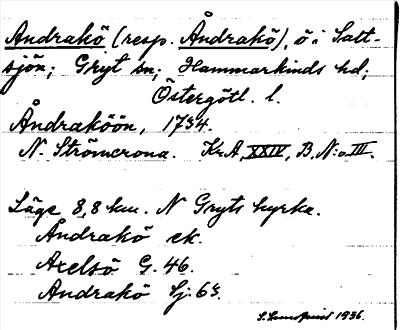 Andrakö (resp. Åndrakö), ö i Salt-
sjön; Gryt sn; Hammarkinds hd;
Östergötl. l.
Åndraköön, 1734.
N. Strömcrona. Kr.A. XXIV, B, N:o III.
Läge 8,8 km. N Gryts kyrka.
Andrakö ek.
Axelsö G. 46.
Andrakö Sj. 63.
S. Lundquist 1936.